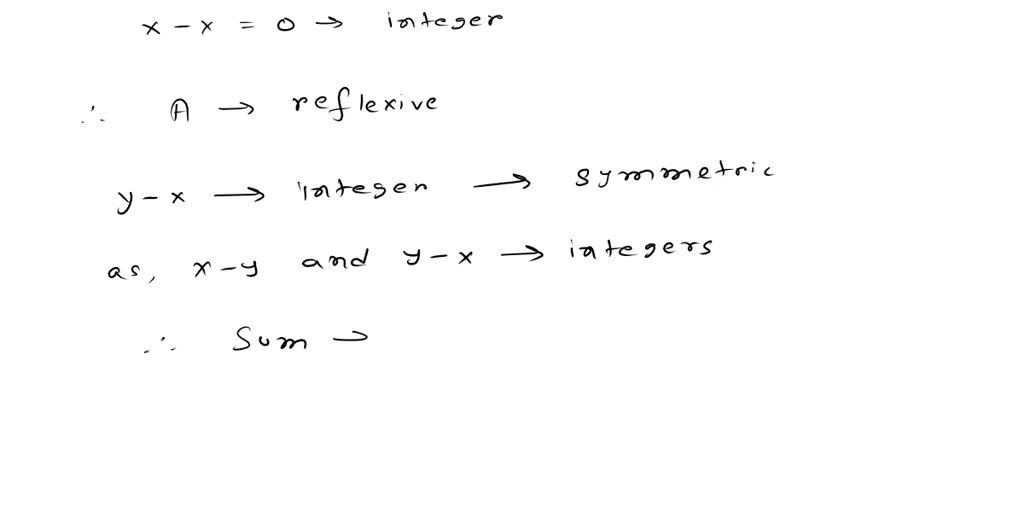 x - x = 0 → integer
∴ A → reflexive
y - x → integer → symmetric
as, x - y and y - x → integers
∴ Sum →